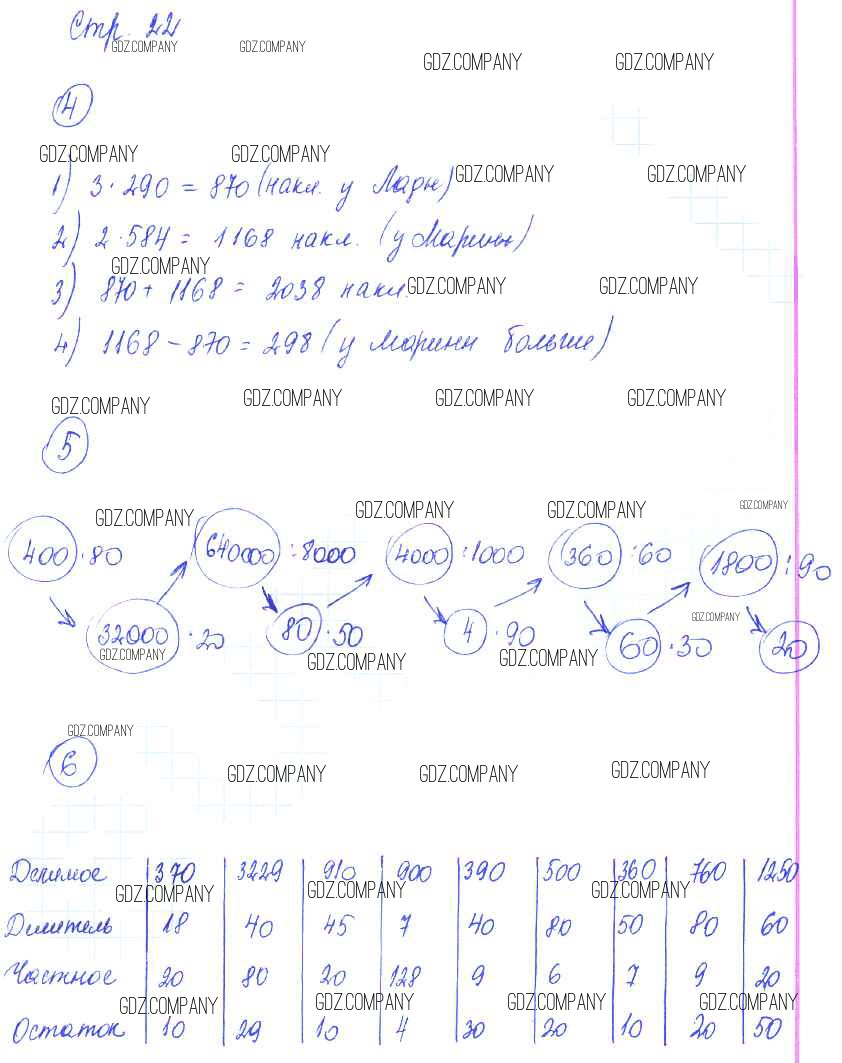 Стр. 22
GDZ.COMPANY GDZ.COMPANY
GDZ.COMPANY GDZ.COMPANY
4
GDZ.COMPANY GDZ.COMPANY
GDZ.COMPANY GDZ.COMPANY
1) 3 · 290 = 870 (накл. у Лады)
2) 2 · 584 = 1168 накл. (у Марины)
GDZ.COMPANY
3) 870 + 1168 = 2038 накл.
GDZ.COMPANY GDZ.COMPANY
4) 1168 - 870 = 298 (у Марины больше)
GDZ.COMPANY GDZ.COMPANY GDZ.COMPANY GDZ.COMPANY
5
GDZ.COMPANY GDZ.COMPANY GDZ.COMPANY GDZ.COMPANY
400 · 80 640000 : 8000 4000 : 1000 360 : 60 1800 : 90
GDZ.COMPANY
32000 · 20 80 · 50 4 · 90 60 · 30 20
GDZ.COMPANY GDZ.COMPANY GDZ.COMPANY
GDZ.COMPANY
6
GDZ.COMPANY GDZ.COMPANY GDZ.COMPANY
Делимое 370 3229 910 900 390 500 360 760 1250
GDZ.COMPANY GDZ.COMPANY GDZ.COMPANY
Делитель 18 40 45 7 40 80 50 80 60
Частное 20 80 20 128 9 6 7 9 20
GDZ.COMPANY GDZ.COMPANY GDZ.COMPANY GDZ.COMPANY
Остаток 10 29 10 4 30 20 10 20 50